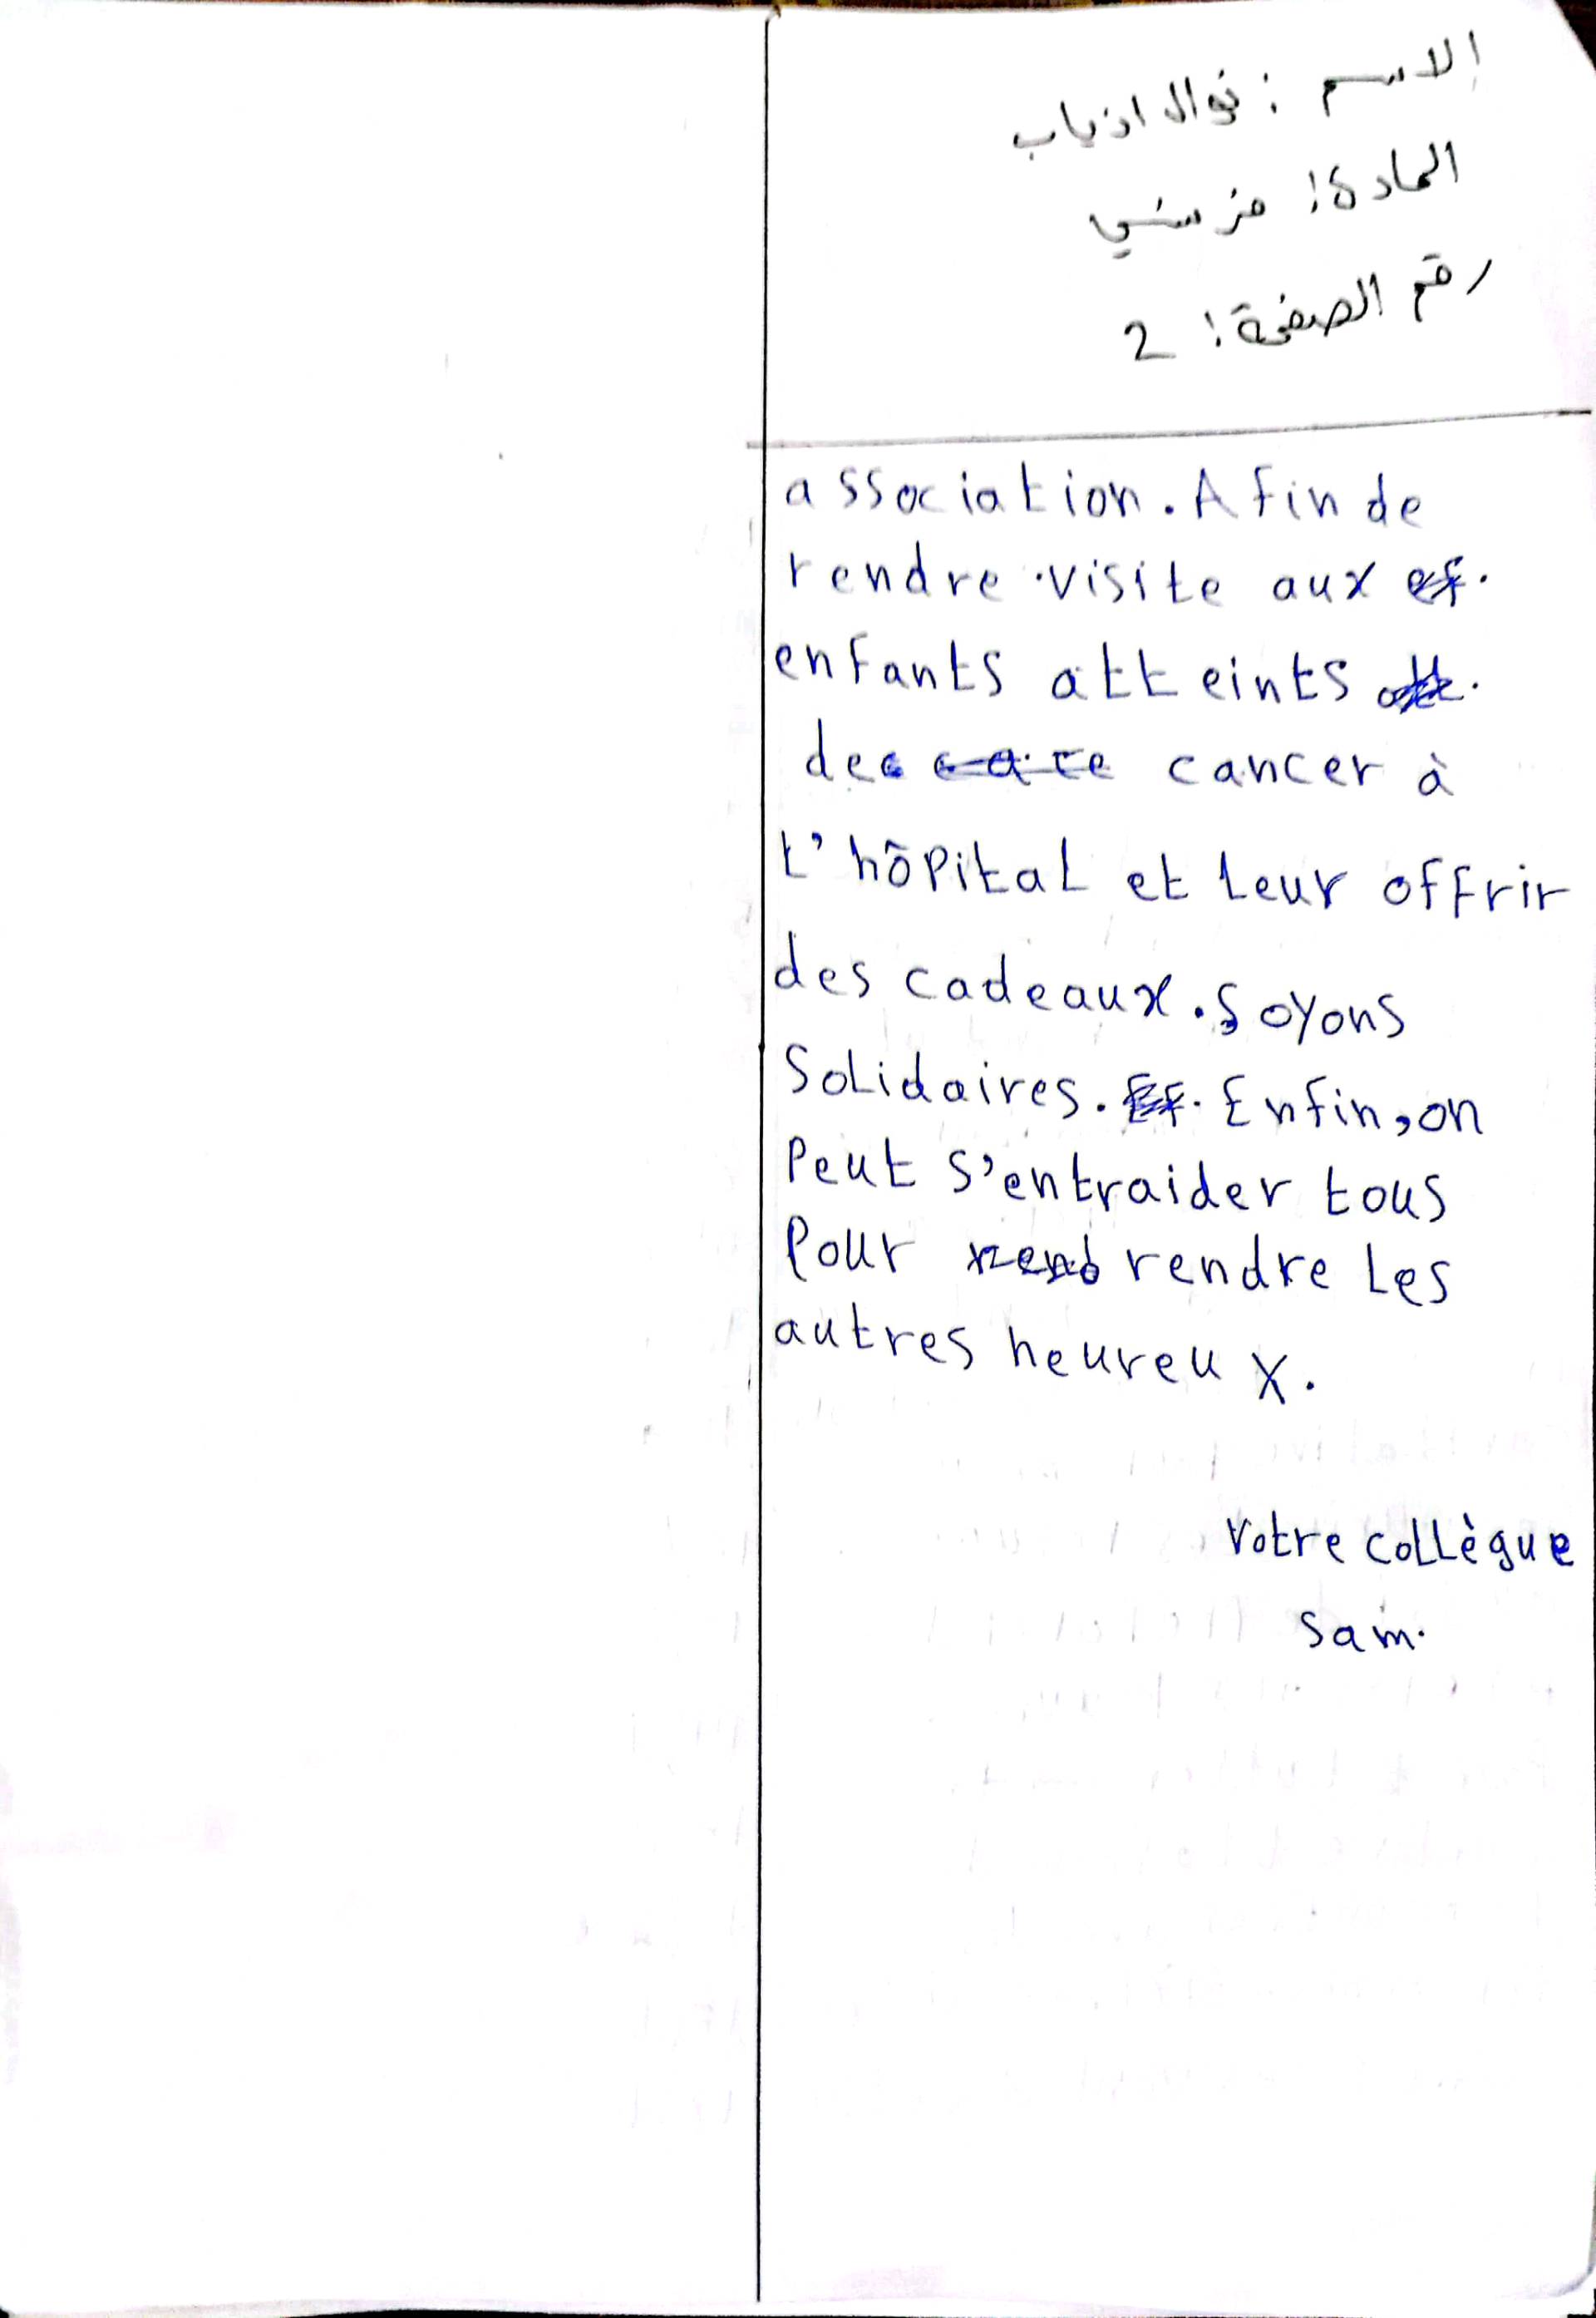 الاسم : نوال اذياب
المادة : فرنسي
رقم الصفحة : 2
association. Afin de
rendre visite aux
enfants atteints
de cancer à
l'hôpital et leur offrir
des cadeaux. Soyons
Solidaires. Enfin, on
Peut s'entraider tous
Pour rendre les
autres heureux.
Votre collègue
Sam.